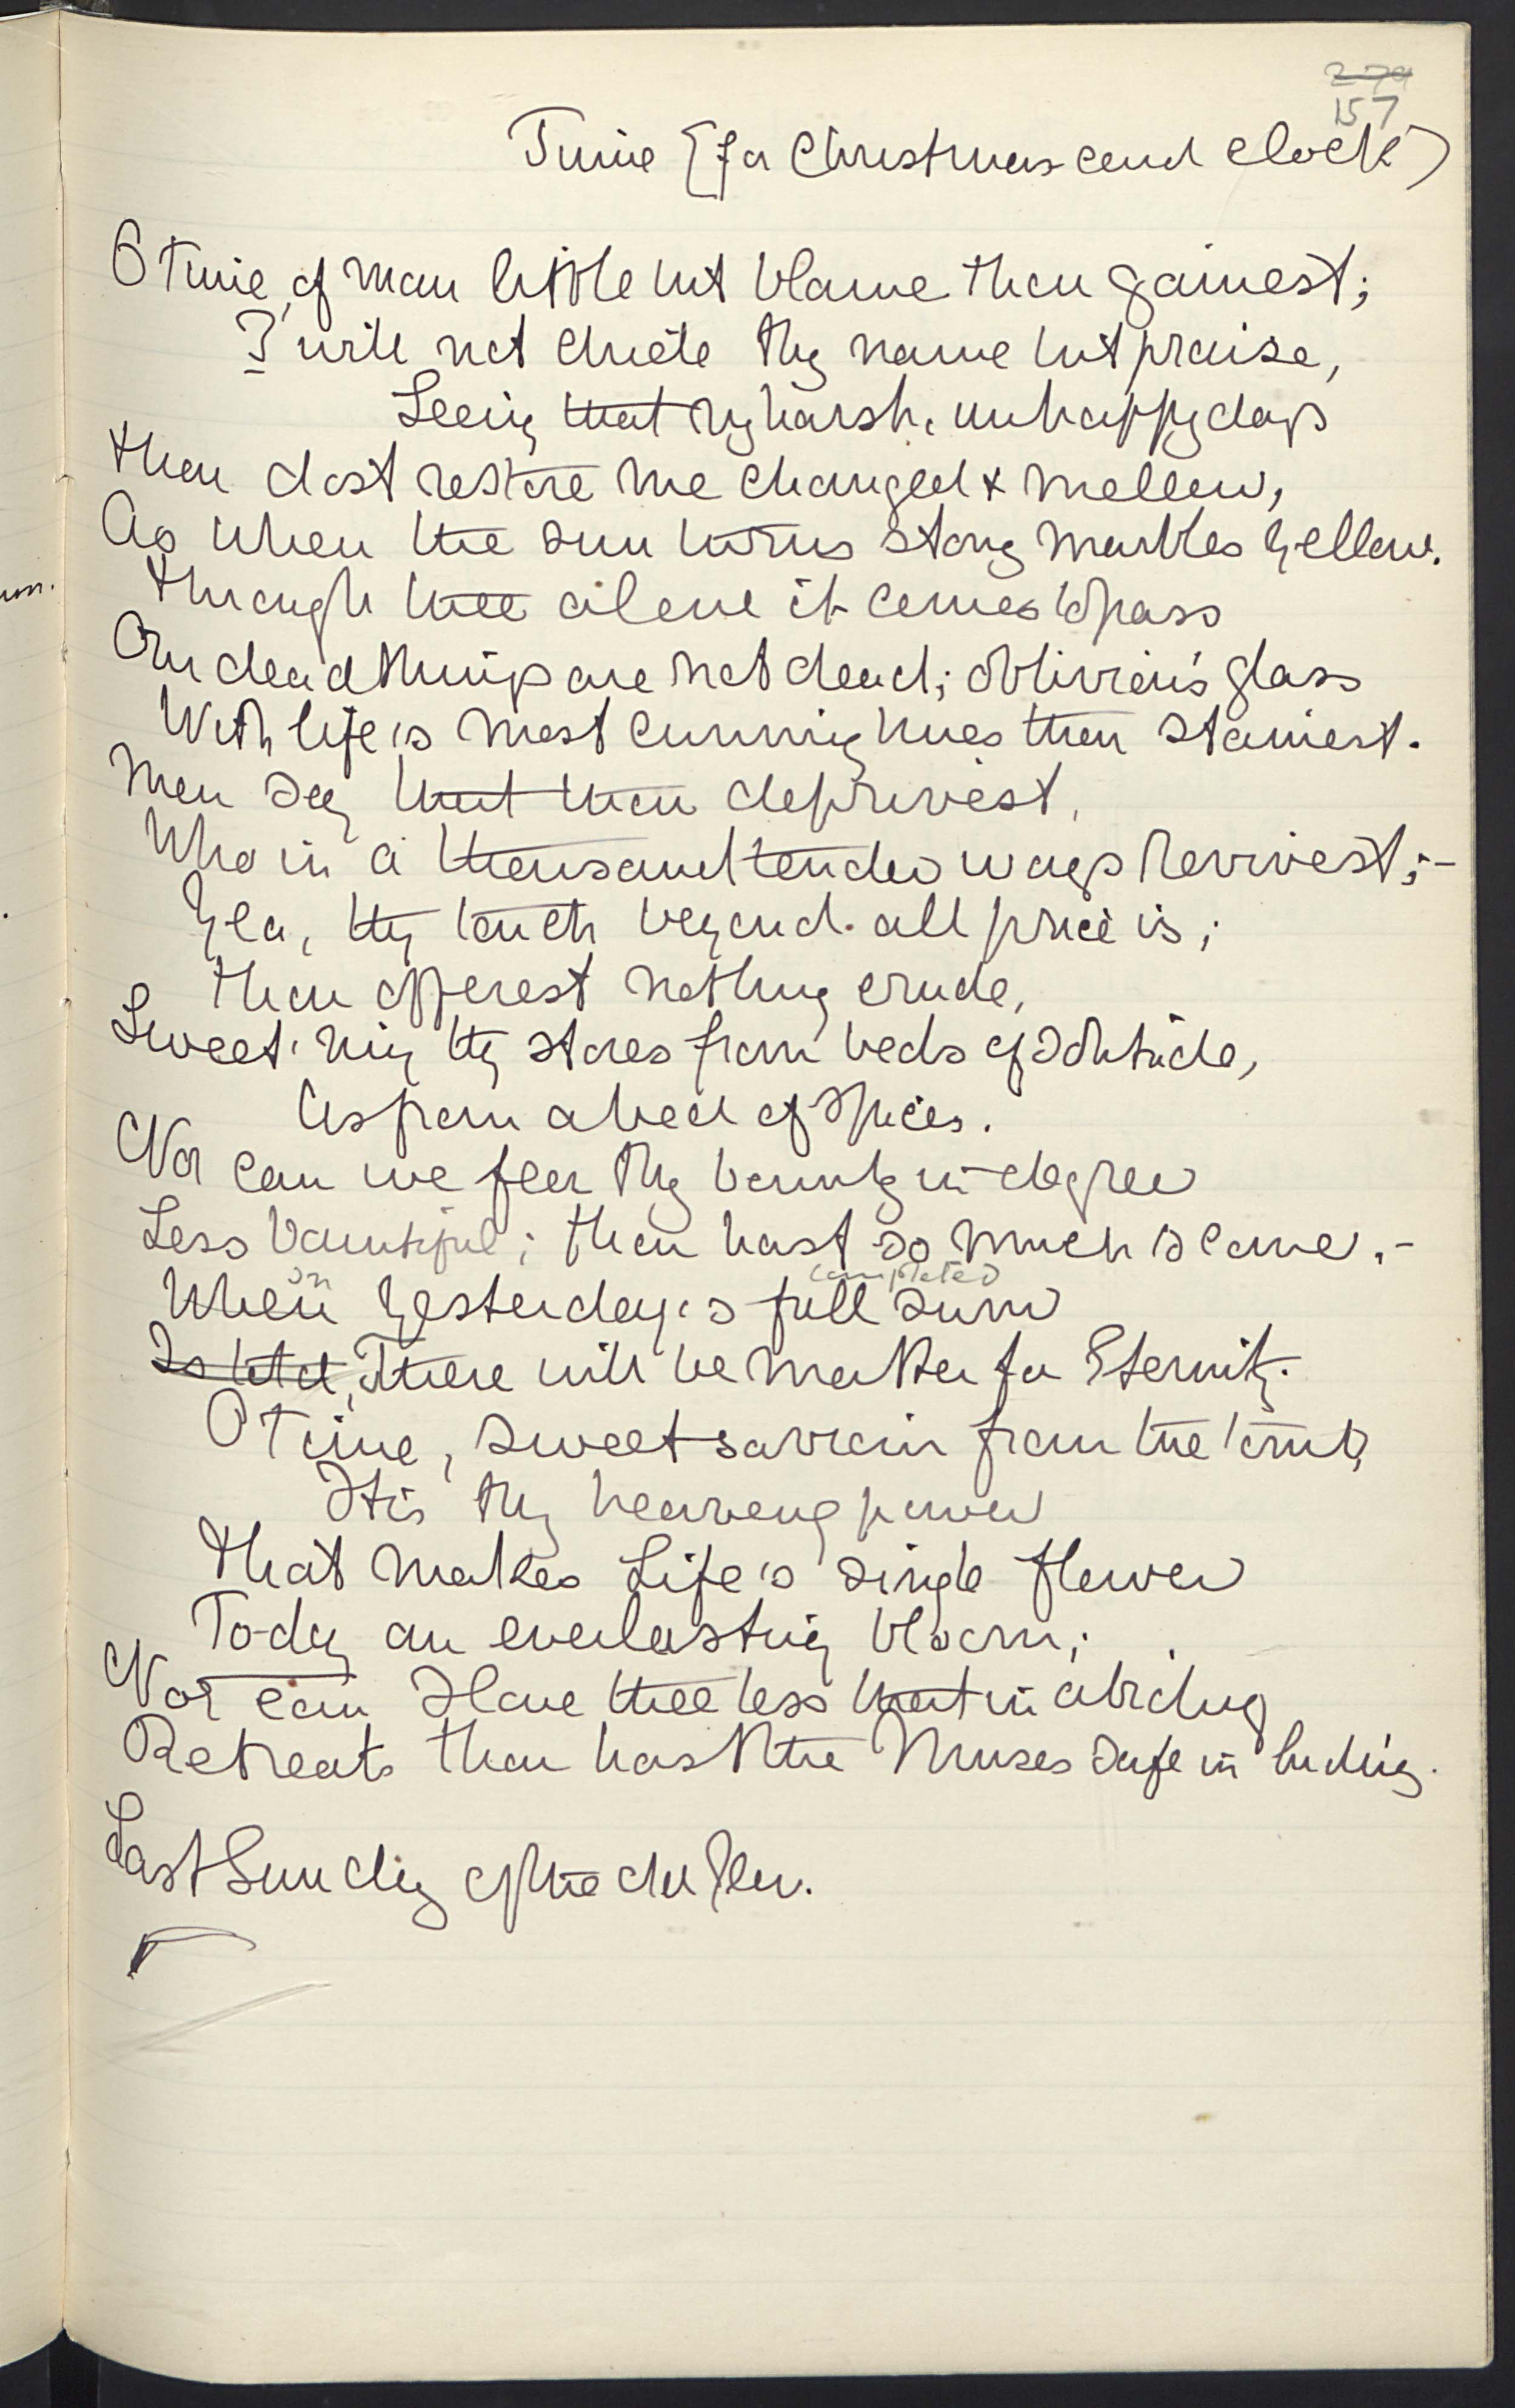 279
157
Time (for Christmas card clock)
O Time, of man little but blame thou gainest;
I will not chide thy name but praise,
Seeing that my harsh, unhappy days
thou dost restore me changed & mellow,
As when the sun turns stony marbles yellow.
Through thee alone it comes to pass
Our dead things are not dead; oblivion's glass
With life's most cunning hues thou stainest.
Men say that thou deprivest,
Who in a thousand tender ways revivest;-
Yea, thy touch beyond all price is;
thou offerest nothing crude,
Sweet'ning thy stores from beds of solitude,
As from a bed of spices.
Nor can we fear thy bounty in degree
Less bountiful; thou hast so much to come.-
on completed
When Yesterday's full sum
Is told, There will be matter for Eternity.
O Time, sweet saviour from the tomb,
It is thy heavenly power
that makes Life's single flower
To-day an everlasting bloom;
Nor can I love thee less that in abiding
Retreats thou hast the Muses safe in hiding.
Last Sunday of the old Year.